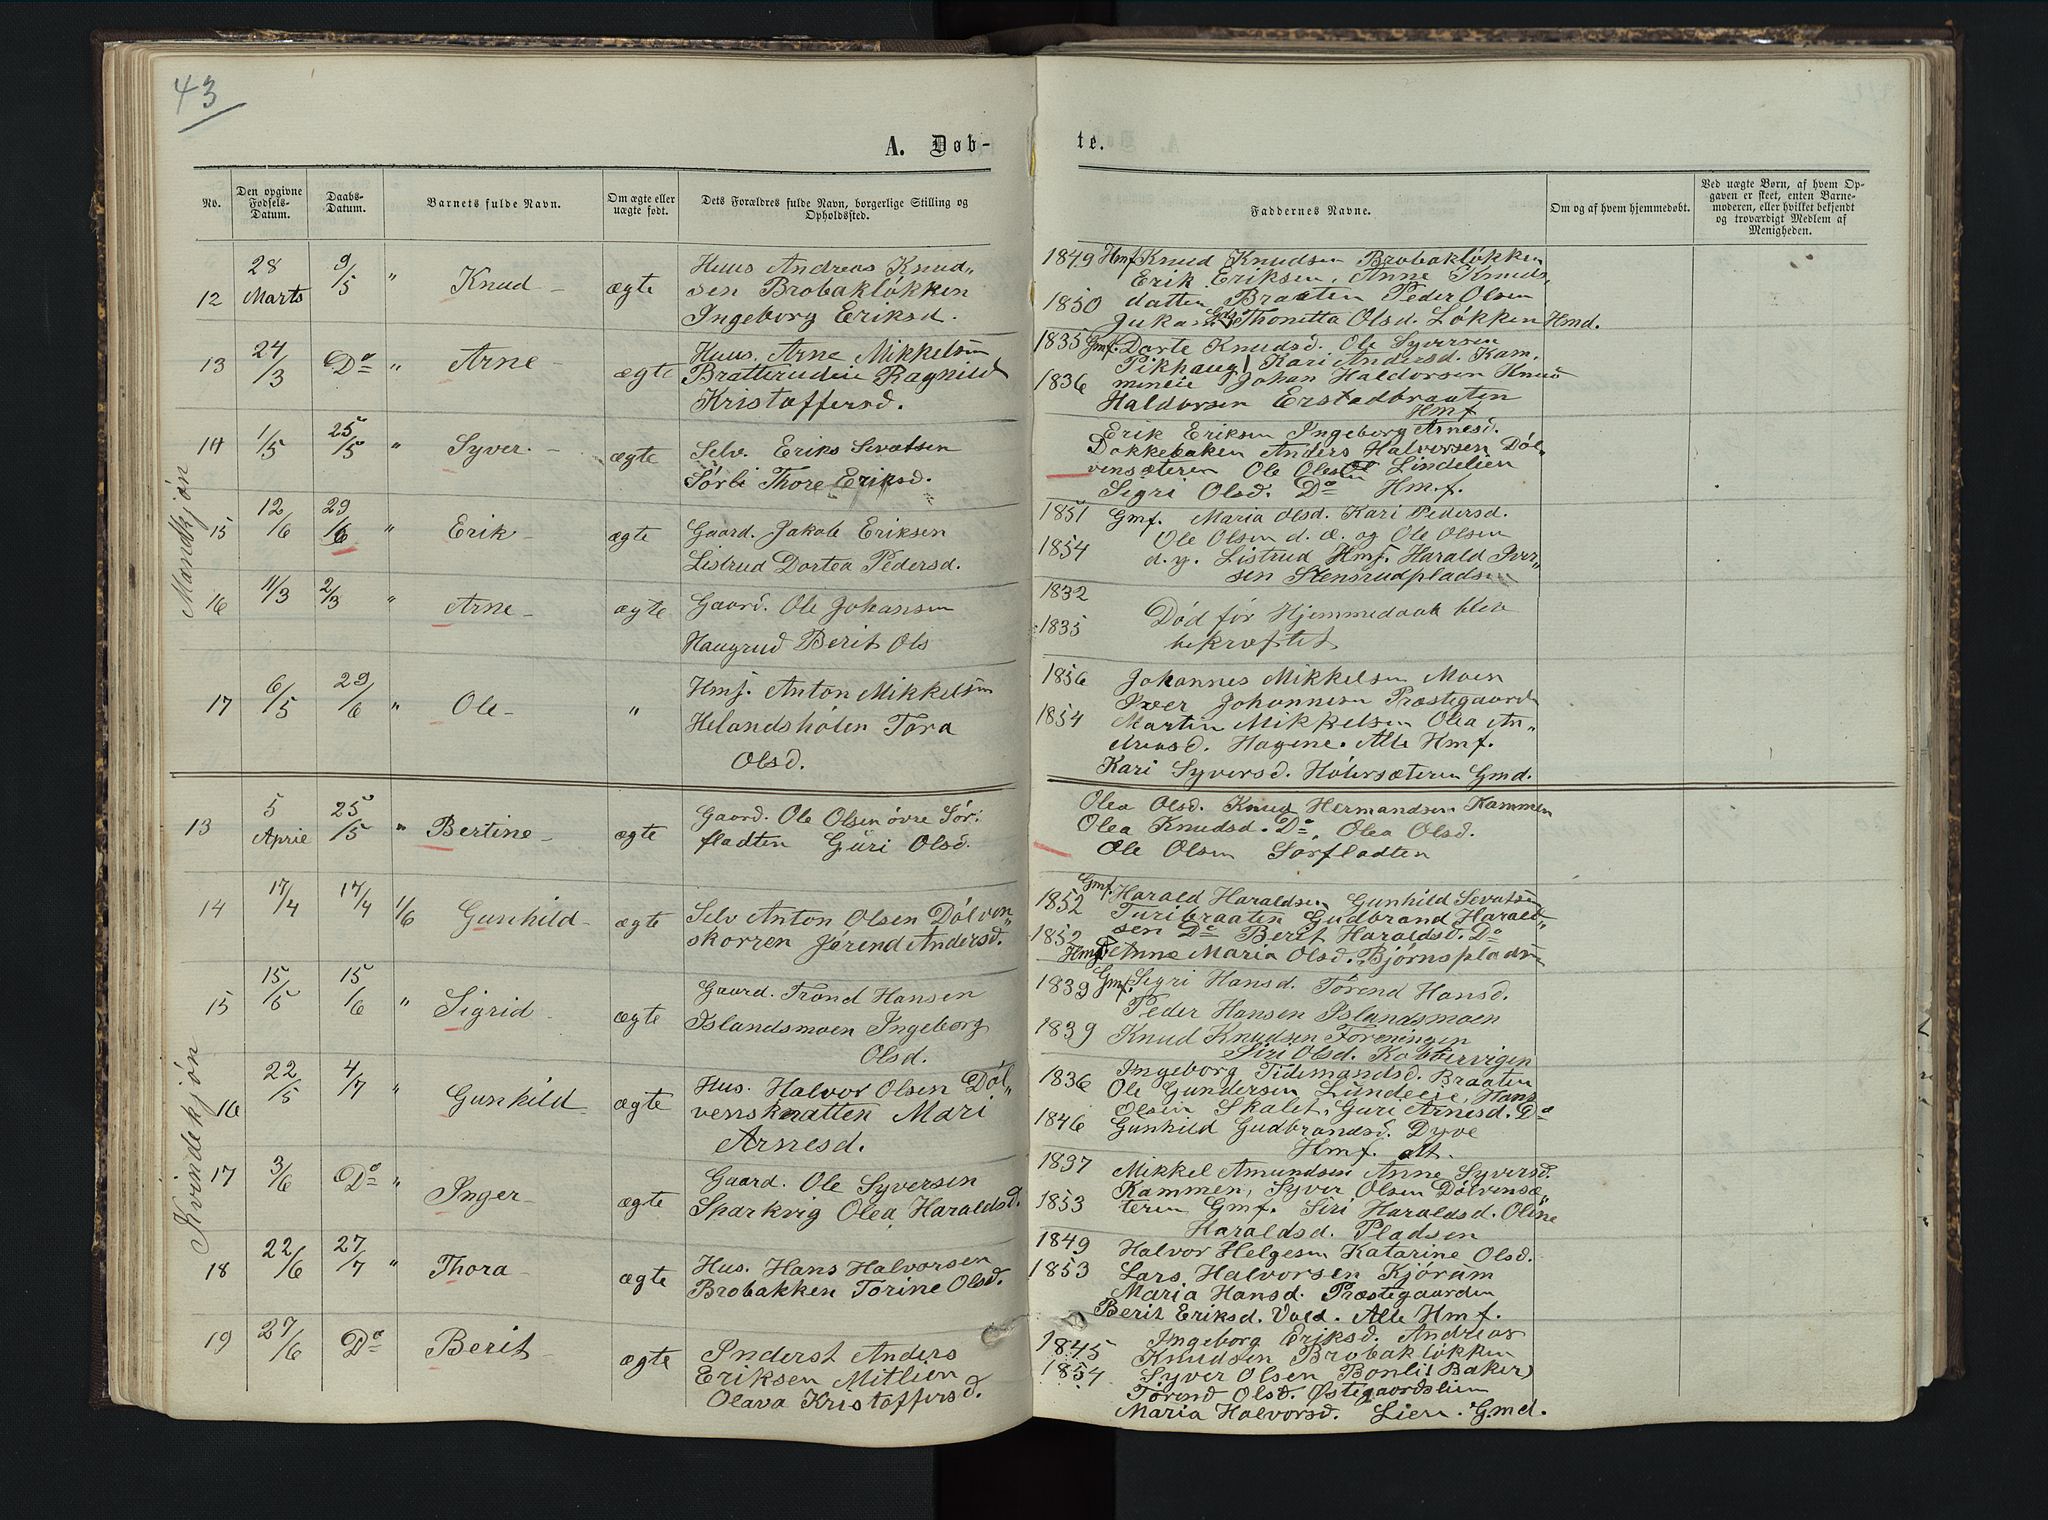 43
A. Døb-
No.
Den opgivne Fødsels-Datum.
Daabs-Datum.
Barnets fulde Navn.
Om ægte eller uægte født.
Dets Forældres fulde Navn, borgerlige Stilling og Opholdssted.
Mandkjøn
12 28 Marts 9/5 " Knud ægte Huus Andreas Knud„
sen Brobakløkken
Ingeborg Eriksd.
13 24/3 Do " Arne ægte Huus. Arne Mikkelsen
Bratterudeie Ragnild
Kristoffersd.
14 1/5 25/5 " Syver ægte Selv. Eriks Sevatsen
Sørli Thore Eriksd.
15 12/6 29/6 " Erik ægte Gaard. Jakob Eriksen
Listrud Dortea Pedersd.
16 11/3 2/3 " Arne ægte Gaard. Ole Johansen
Haugrud Berit Ols
17 6/5 29/6 " Ole " Hmf. Anton Mikkelsen
Helandshølen Tora
Olsd.
Kvindekjøn
13 5 April 25/5 " Bertine ægte Gaard. Ole Olsen øvre Sør:
fladten Guri Olsd.
14 17/4 17/4 1/6 Gunhild ægte Selv Anton Olsen Dølven„
skorren Jørend Andersd.
15 15/5 15/6 " Sigrid ægte Gaard. Trond Hansen
Islandsmoen Ingeborg
Olsd.
16 22/5 4/7 " Gunhild ægte Hus. Halvor Olsen Døl„
vensknatten Mari
Arnesd.
17 3/6 Do " Inger ægte Gaard. Ole Syversen
Sparkvig Olea Haraldsd.
18 22/6 27/7 " Thora ægte Hus. Hans Halvorsen
Brobakken Torine Olsd.
19 27/6 Do Berit ægte Inderst Anders
Eriksen Mitlien
Olava Kristoffersd.
te.
Faddernes Navne.
Om og af hvem hjemmedøbt.
Ved uægte Børn, af hvem Op-
gaven er skeet, enten Barne-
moderen, eller hvilket bekjendt
og troværdigt Medlem af
Menigheden.
1849 Hmf Knud Knudsen Brobakløkken
Erik Eriksen, Anne Knuds„
1850 datten Braaten Peder Olsen
Thonetta Olsd. Løkken Hmd.
1835 Gmf. Dorte Knudsd. Ole Syversen
Pikhaug Kari Andersd. Kam„
1836 meneie Johan Haldorsen Knud
Haldorsen Erstadbraaten
Hmf
Erik Eriksen Ingeborg Arnesd.
Dokkebaken Anders Halvorsen Døl„
vensæteren Ole Olesen Lindelien
Sigri Olsd. Do Hmf.
1851 Gmf. Maria Olsd. Kari Pedersd.
Ole Olsen d. æ. og Ole Olsen
1854 d. y. Listrud Hmf. Harald Iver„
sen Stensrudpladsen
1832
Død før Hjemmedaab blev
1835
bekræftet
1856 Johannes Mikkelsen Moen
Iver Johannesen Præstegaarden
1854 Martin Mikkelsen Olea An„
dreasd. Hagene. Alle Hmf.
Kari Syversd. Hølersæteren Gmd.
Olea Olsd. Knud Hermandsen Kammen
Olea Knudsd. Do, Olea Olsd.
Ole Olsen Sørfladten
1852 Gmf. Harald Haraldsen Gunhild Sevatsen
Turibraaten Gudbrand Harald„
1852 sen Do Berit Haraldsd. Do
Hmf Anne Maria Olsd. Bjørnspladsen
1839 Gmf. Sigri Hansd. Tørend Hansd.
Peder Hansen Islandsmoen
1839 Knud Knudsen Foreningen
Siri Olsd. Kobbervigen
1836 Ingeborg Tidemandsd. Braaten
Ole Gundersen Lundeeie, Hans
Olsen Skalet, Guri Arnesd. Do
1846 Gunhild Gudbrandsd. Dyve
Hmf. alt.
1837 Mikkel Amundsen Anne Syversd.
Kammen, Syver Olsen Dølvensæ„
1853 teren Gmf. Siri Haraldsd. Oline
Haraldsd. Pladsen
1849 Halvor Helgesen Katarine Olsd.
1853 Lars Halvorsen Kjørum
Maria Hansd. Præstegaarden
Berit Eriksd. Vold. Alle Hmf.
1845 Ingeborg Eriksd. Andreas
Knudsen Brobakløkken
1854 Syver Olsen Bonli (Baker)
Tørend Olsd. Østegaardslien
Maria Halvorsd. Lien. Gmd.